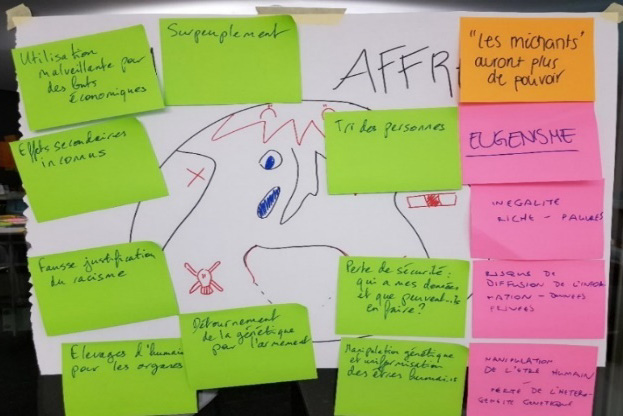 Utilisation
malveillante par
des buts
économiques
Surpeuplement
AFFR
"Les michants"
auront plus
de pouvoir
Effets secondaires
inconnus
Tri des personnes
EUGENISME
INEGALITE
RICHE - PAUVRES
Fausse justification
du racisme
Perte de sécurité :
qui a mes données
et que peuvent-ils
en faire?
RISQUE DE
DIFFUSION DE L'INFOR
MATION - DONNEES
PRIVEES
Elevages d'humains
pour les organes
Détournement
de la génétique
pour l'armement
Manipulation génétique
et uniformisation
des êtres humains
MANIPULATION
DE L'ETRE HUMAIN
PERTE DE L'HETERO-
GENEITE GENETIQUE